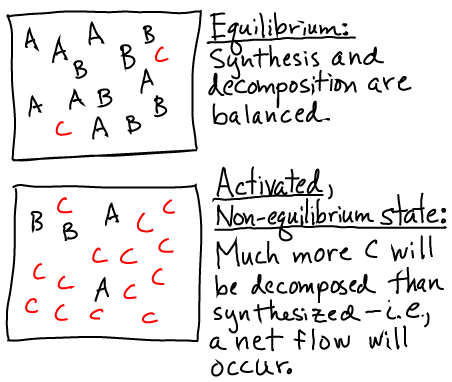 A A A B
B B C
A
A A B B
C A B
Equilibrium:
Synthesis and
decomposition are
balanced.
C A C C
B B
C C C
C C A C C
C C C C
Activated,
Non-equilibrium state:
Much more C will
be decomposed than
synthesized - i.e.,
a net flow will
occur.